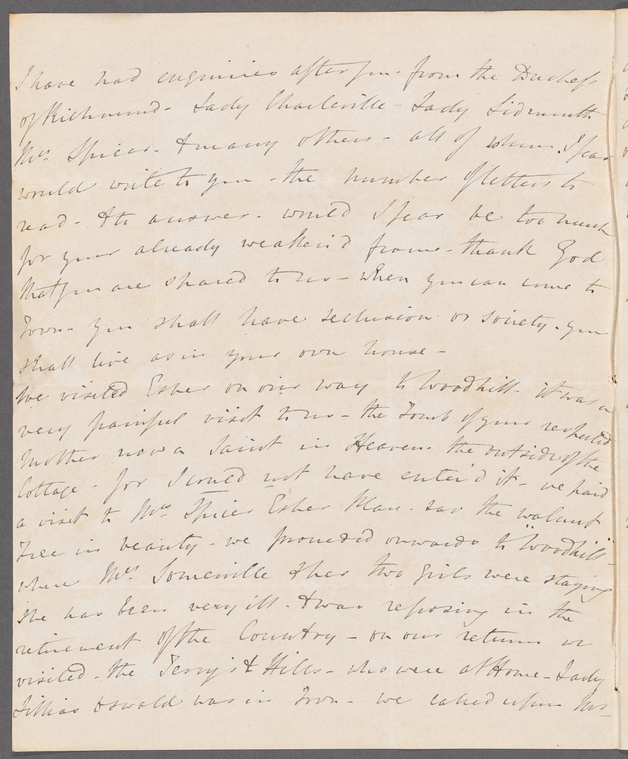 I have had enquiries after you - from the Duchess
of Richmond - Lady Charleville - Lady Sidmouth
Mrs. Spicer - & many others - all of whom I fear
would write to you - the number of letters to
read - & to answer - would I fear be too much
for your already weaken'd frame - thank God
that you are spared to us - when you can come to
Town - you shall have seclusion or society - you
shall live as in your own house -
We visited Esher on our way to Woodhill - it was a
very painful visit to us - the Tomb of your respected
Mother now a Saint in Heaven - the outside of the
Cottage - for I could not have enter'd it - we paid
a visit to Mrs Spicer Esher Place - saw the walnut
Tree in beauty - we proceeded onwards to Woodhill -
where Mrs. Somerville & her two girls were staying
She has been very ill - & was reposing in the
retirement of the Country - on our return we
visited - the Terry's & Hills - who were at Home - Lady
Lillias Oswald was in Town - we called upon Mrs